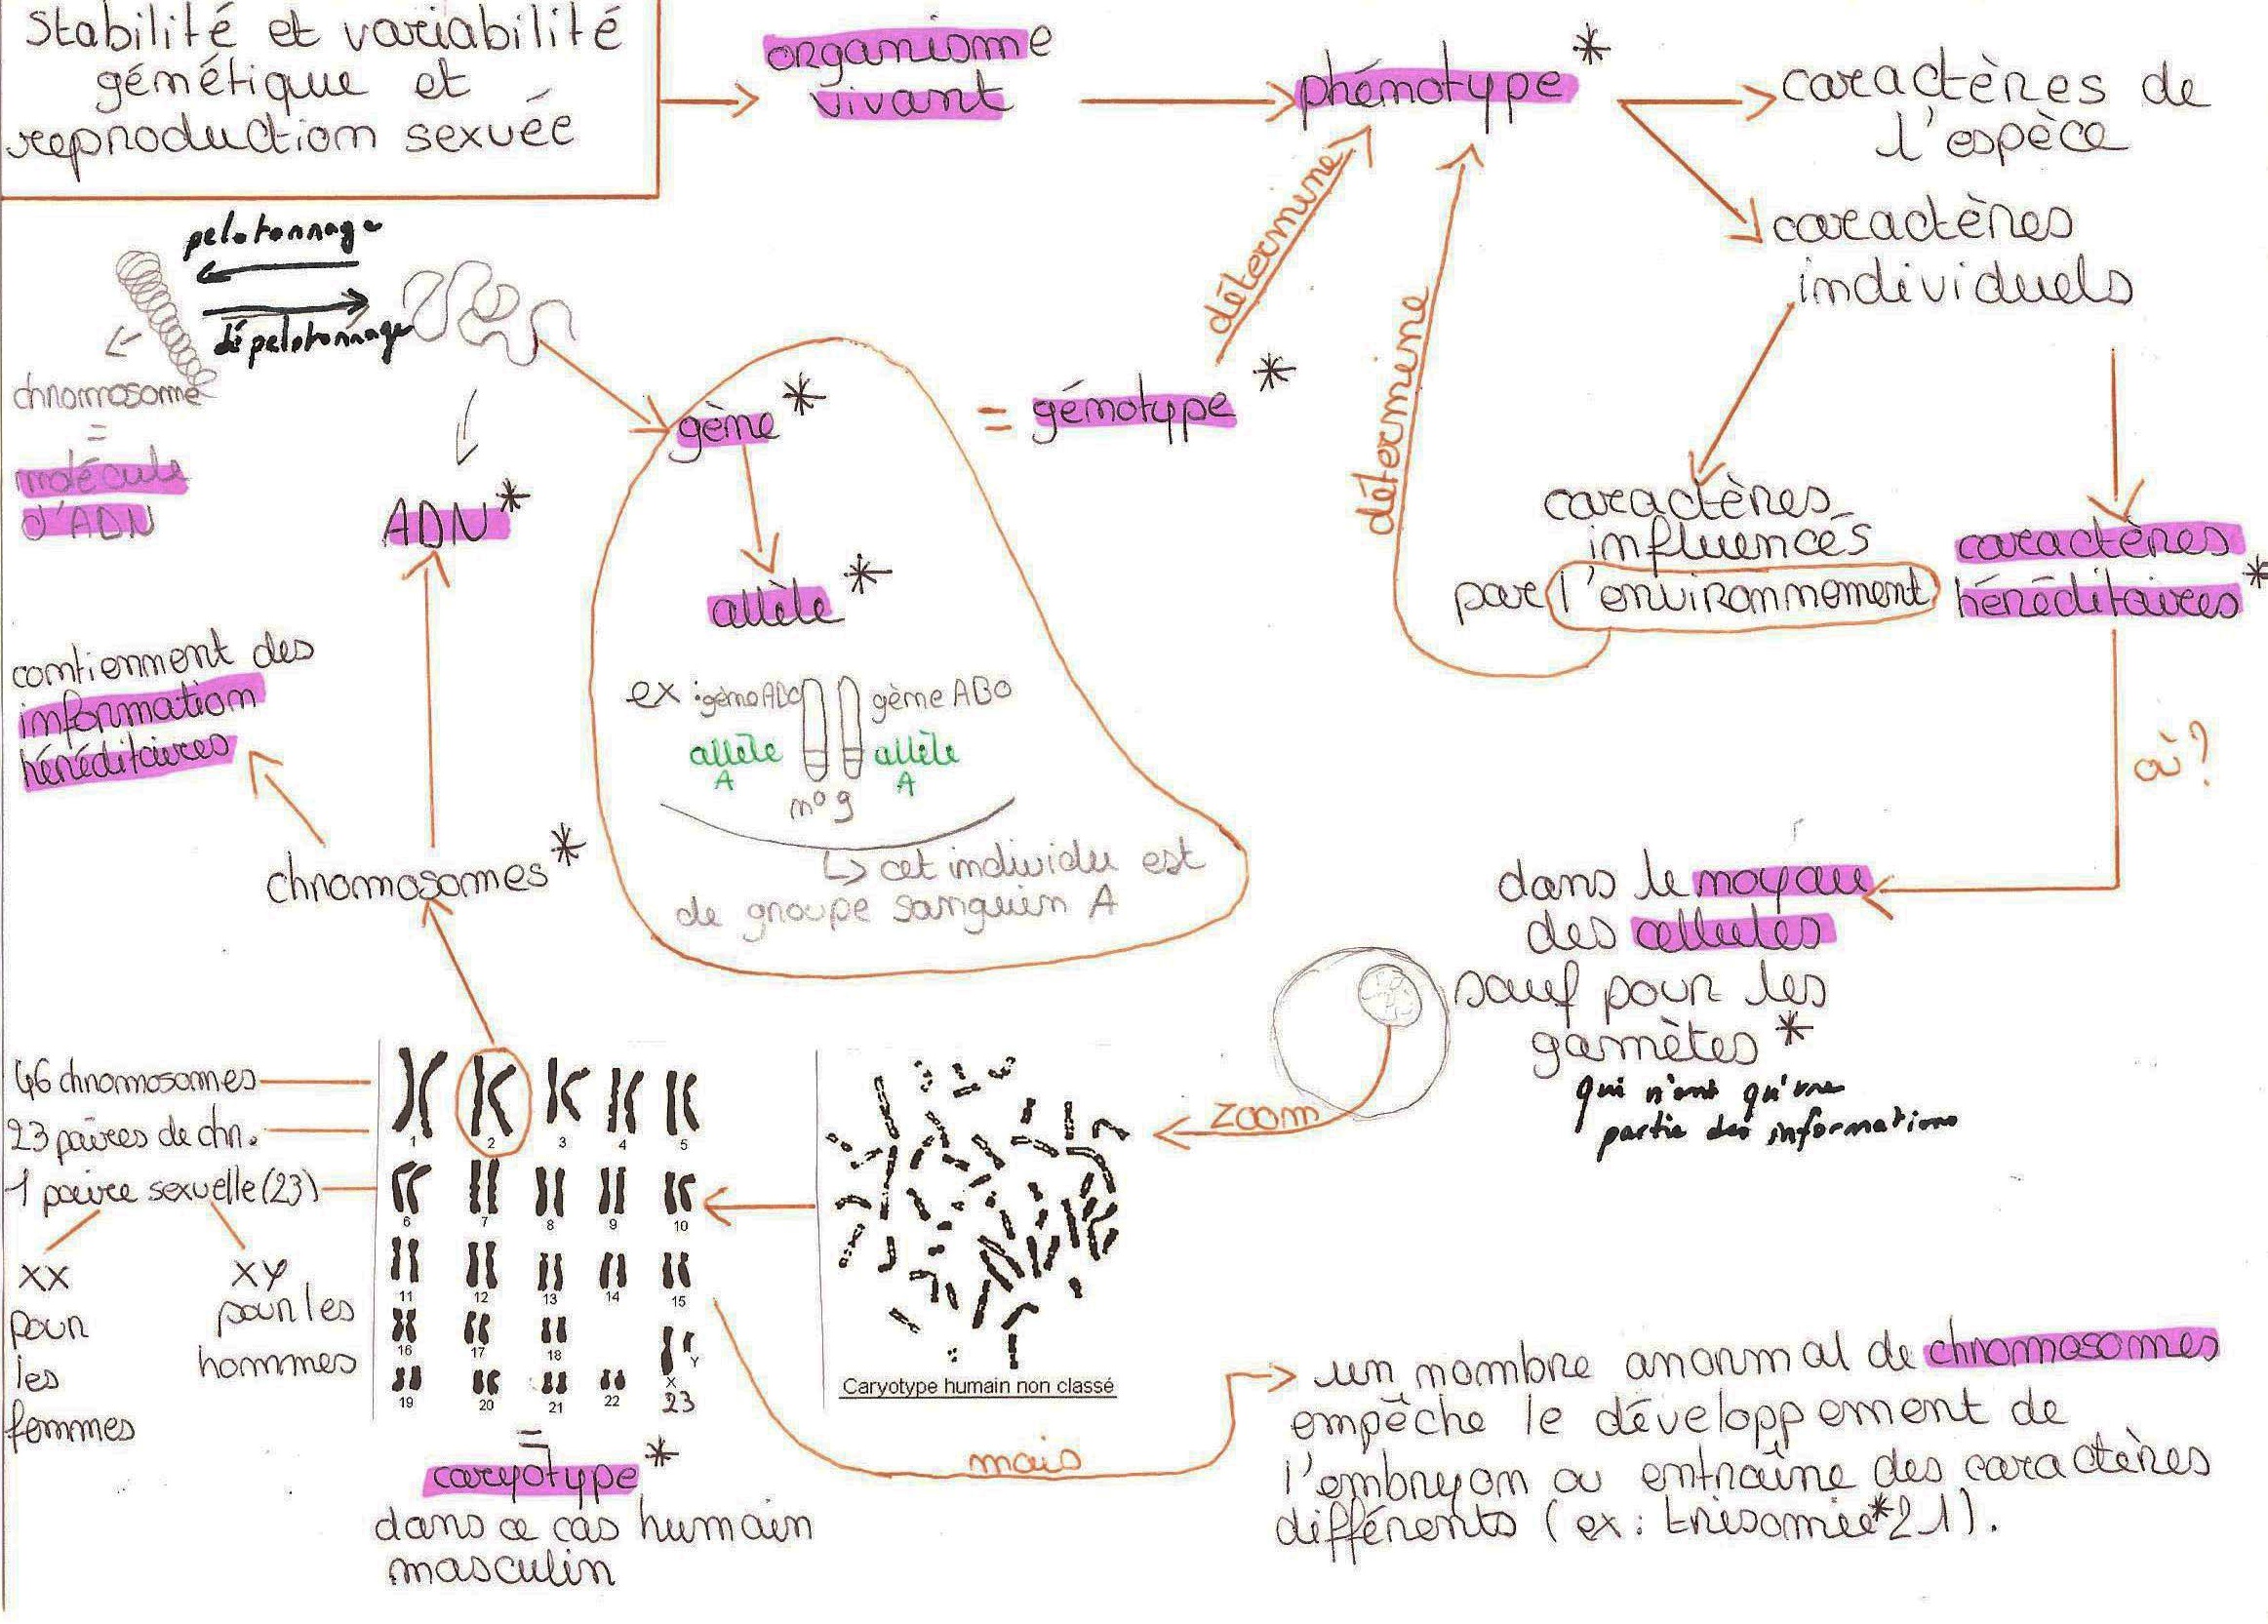 Stabilité et variabilité
génétique et
reproduction sexuée
organisme
vivant
phénotype *
caractères de
l'espèce
caractères
individuels
détermine
détermine
pelotonnage
dépelotonnage
chromosome
=
molécule
d'ADN
ADN *
gène *
= génotype *
allèle *
ex : gène ABO
gène ABO
allèle
A
allèle
A
n° 9
↳ cet individu est
de groupe sanguin A
caractères
influencés
par l'environnement
caractères
héréditaires *
où ?
contiennent des
information
héréditaires
chromosomes *
dans le noyau
des cellules
sauf pour les
gamètes *
qui n'ont qu'une
partie des informations
zoom
46 chromosomes
23 paires de chr.
1 paire sexuelle (23)
XX
pour
les
femmes
XY
pour les
hommes
1 2 3 4 5
6 7 8 9 10
11 12 13 14 15
16 17 18
X Y
19 20 21 22 23
Caryotype humain non classé
=
caryotype *
dans ce cas humain
masculin
mais
un nombre anormal de chromosomes
empêche le développement de
l'embryon ou entraîne des caractères
différents (ex : trisomie * 21).